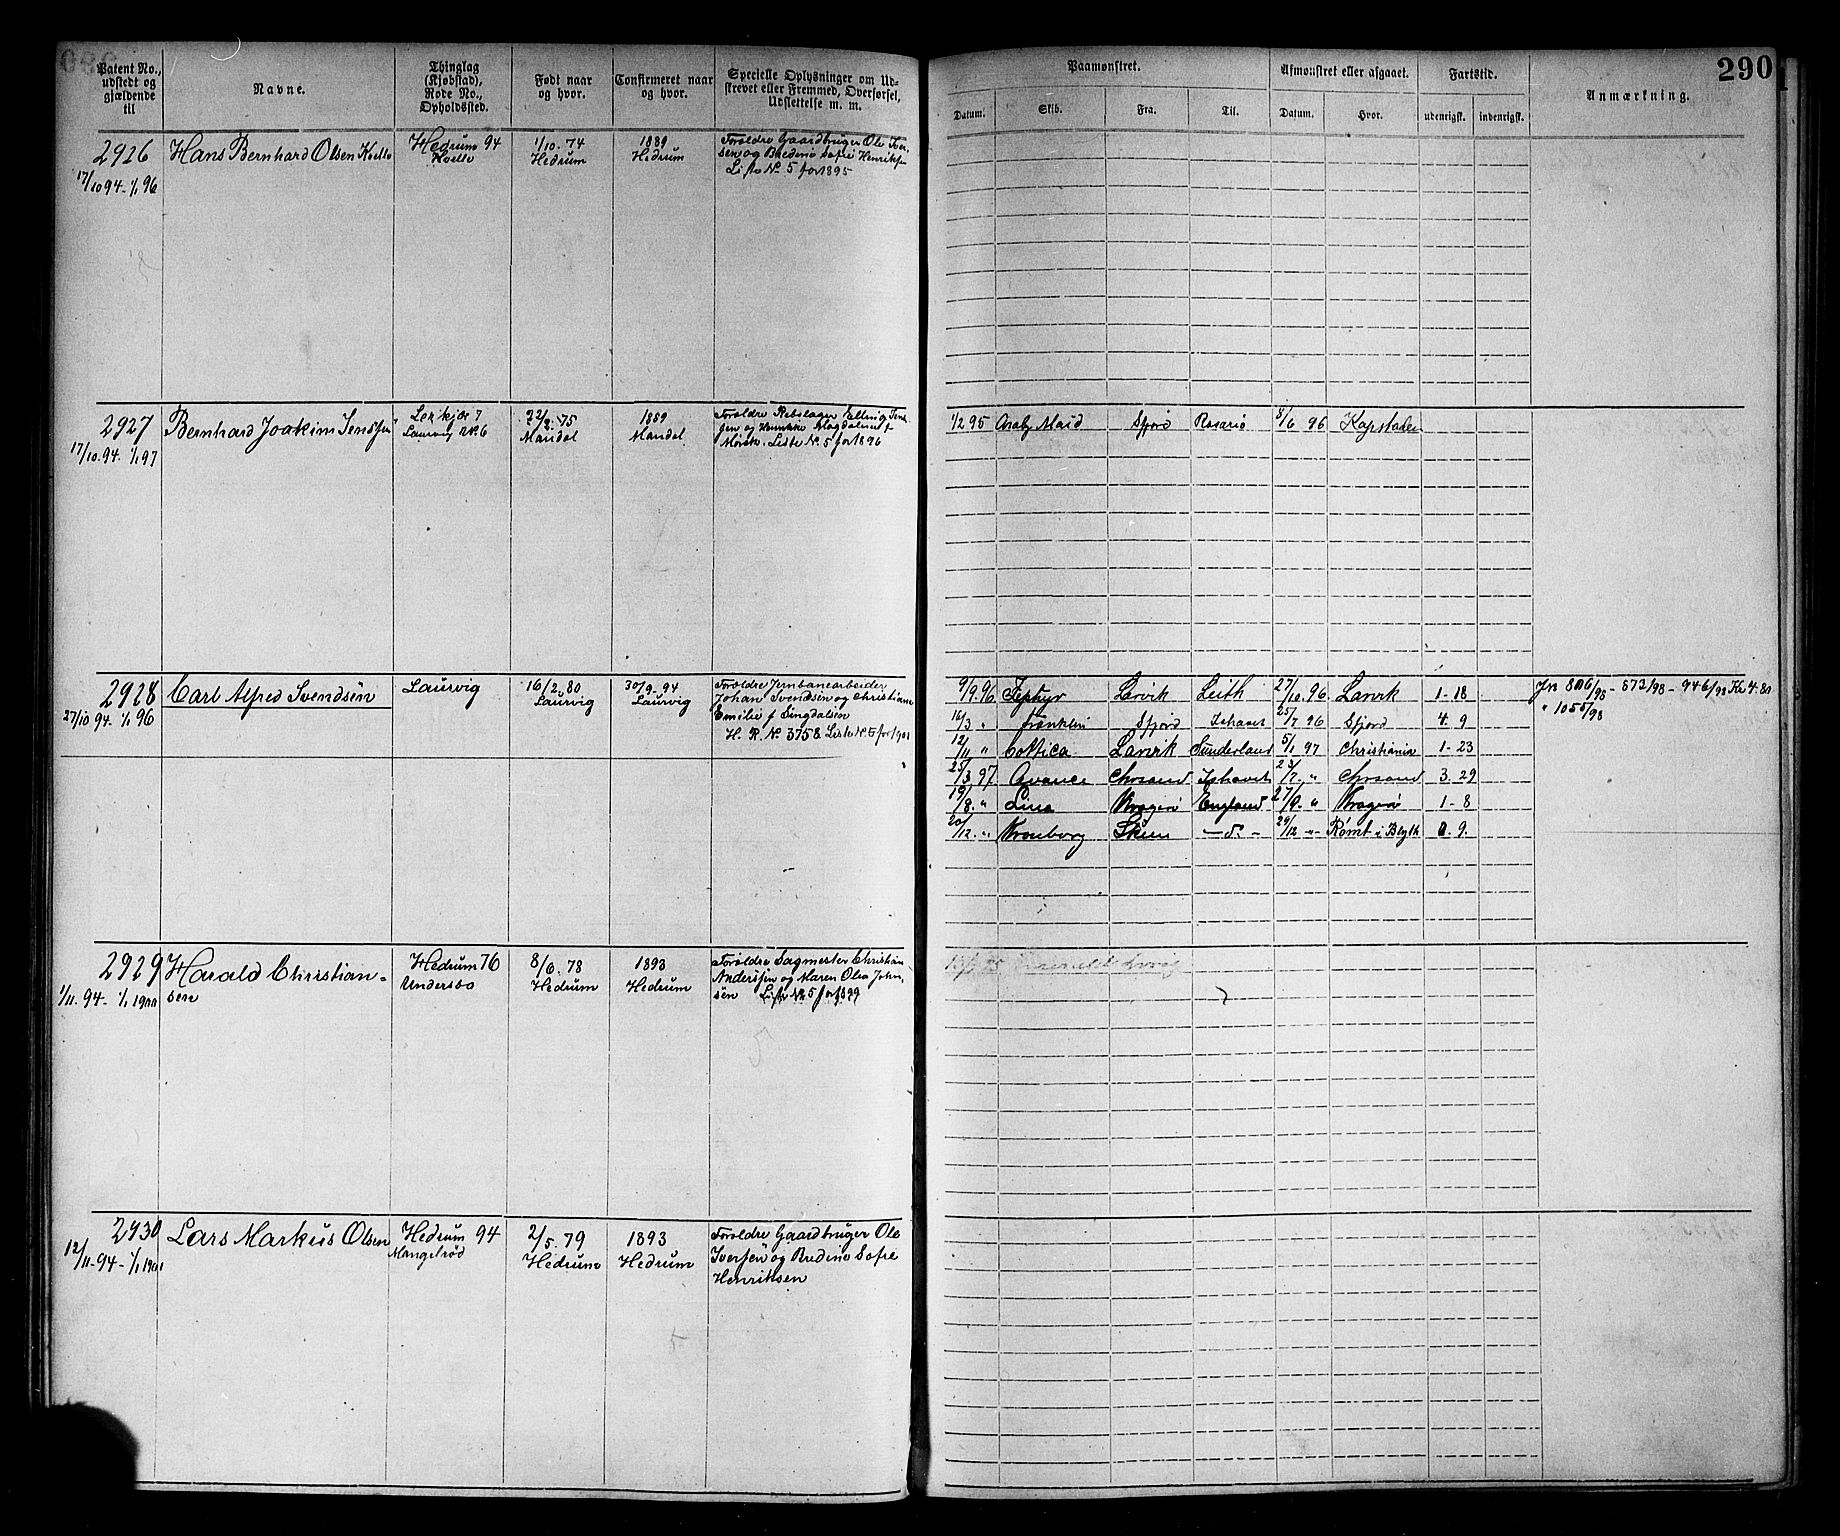 290
Patent No., udstedt og gjældende til
Navne.
Thinglag (Kjøbstad), Rode No., Opholdssted.
Født naar og hvor.
Confirmeret naar og hvor.
Specielle Oplysninger om Udskrevet eller Fremmed, Overførsel, Udslettelse m. m.
Paamønstret.
Afmønstret eller afgaaet.
Fartstid.
Anmærkning.
Datum.
Skib.
Fra.
Til.
Datum.
Hvor.
udenrigsk.
indenrigsk.
2926
17/10 94 - 1/1 96
Hans Bernhard Olsen Kvelle
Hedrum 94
Kvelle
1/10. 74
Hedrum
1889
Hedrum
Forældre Gaardbruger Ole Iver-
sen og Bredine Sofie Henriksen
Liste No 5 for 1895
2927
17/10. 94. 1/1 97
Bernhard Joakim Jenssen
Laurvig No 6
22/2. 75
Mandal
1889
Mandal
Forældre Rebslager Elling Jens-
sen og Magdalene f
Mørch. Liste No 5 for 1896
1/2 95 Araby Maid Sfjord Rosario 8/6 96 Kapstaden
2928
27/10 94. 1/1 96
Carl Alfred Svendsen
Laurvig
16/2. 80
Laurvig
30/9-94
Laurvig
Forældre Jernbanearbeider
Johan Svendsen og Christiane
Emilie f Singdalsen
H. R. No 3758 Liste No 5 for 1901
9/9. 96 Zephyr Larvik Leith 27/10. 96. Larvik 1-18
16/3 " Franklin Sfjord Ishavet 25/7 96 Sfjord 4. 9
12/11 " Cottica Larvik Sunderland 5/1 97 Christiania 1-23
25/3. 97 Avance Chrsand Ishavet 23/7. " Chrsand 3. 29
19/8. " Lina Kragerö England 27/9. " Kragerö 1-8
20/12. " Kronborg Skien -d.- 29/12 " Rømt i Blyth 0. 9.
Jn 806/98 - 573/98 - 946/98 Kr 4.80
" 1055/98
2929
1/11. 94 - 1/1 1900
Harald Christian-
sen
Hedrum 76
Undersbo
8/6. 78
Hedrum
1893
Hedrum
Forældre Sagmester Christian
Anderssen og Maren Olea John-
sen Liste No 5 for 1899
2930
12/11-94 - 1/1 1901
Lars Markus Olsen
Hedrum 94
Mangelrød
2/5. 79
Hedrum
1893
Hedrum
Forældre Gaardbruger Ole
Iversen og Bredine Sofie
Henriksen